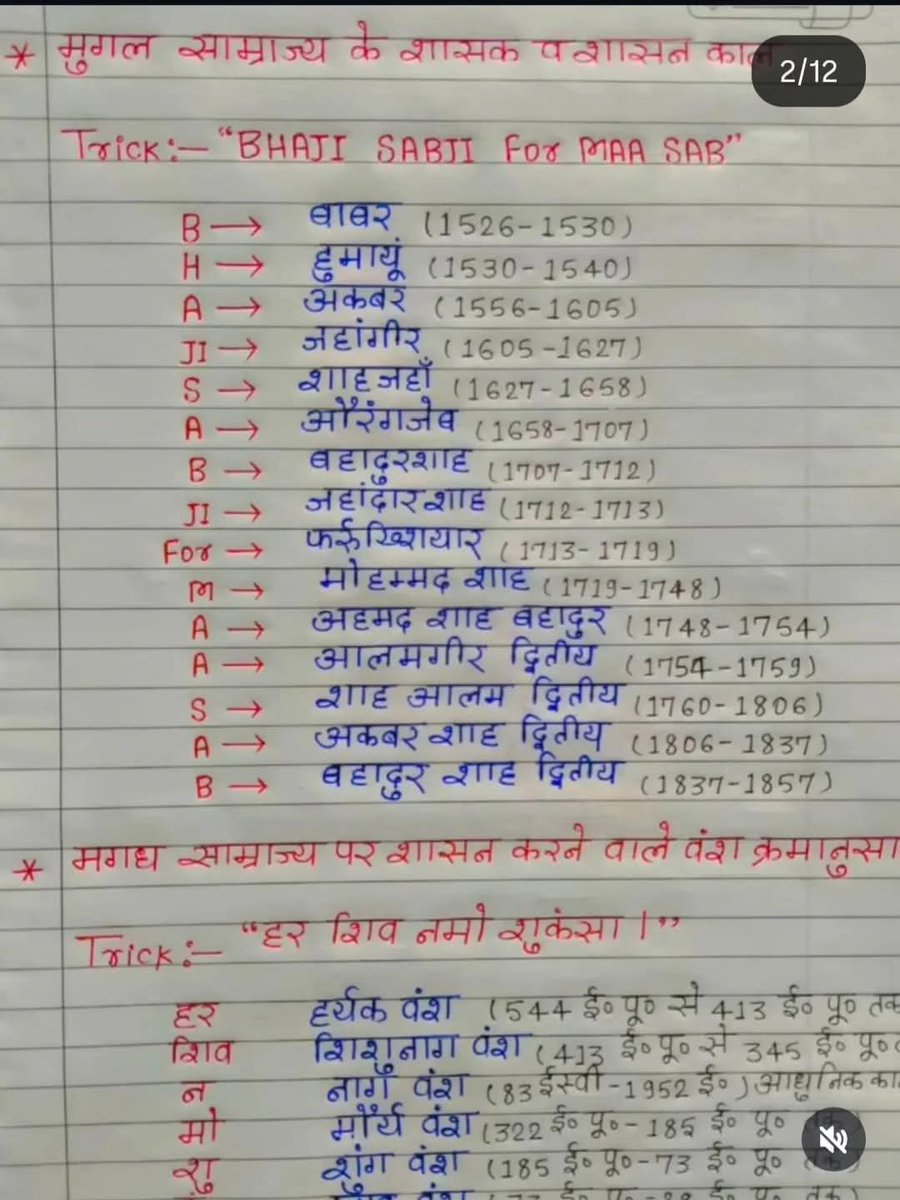 2/12
* मुगल साम्राज्य के शासक व शासन काल
Trick:- "BHAJI SABJI For MAA SAB"
B → बाबर (1526-1530)
H → हुमायूं (1530-1540)
A → अकबर (1556-1605)
JI → जहांगीर (1605-1627)
S → शाहजहाँ (1627-1658)
A → औरंगजेब (1658-1707)
B → बहादुरशाह (1707-1712)
JI → जहांदारशाह (1712-1713)
For → फर्रुख्शियार (1713-1719)
M → मोहम्मद शाह (1719-1748)
A → अहमद शाह बहादुर (1748-1754)
A → आलमगीर द्वितीय (1754-1759)
S → शाह आलम द्वितीय (1760-1806)
A → अकबर शाह द्वितीय (1806-1837)
B → बहादुर शाह द्वितीय (1837-1857)
* मगध साम्राज्य पर शासन करने वाले वंश क्रमानुसा
Trick:- "हर शिव नमो शुकंसा।"
हर हर्यक वंश (544 ई० पू० से 413 ई० पू० तक
शिव शिशुनाग वंश (413 ई० पू० से 345 ई० पू०
न नाग वंश (83 ईस्वी - 1952 ई०) आधुनिक का
मो मौर्य वंश (322 ई० पू० - 185 ई० पू०
शु शुंग वंश (185 ई० पू० - 73 ई० पू०